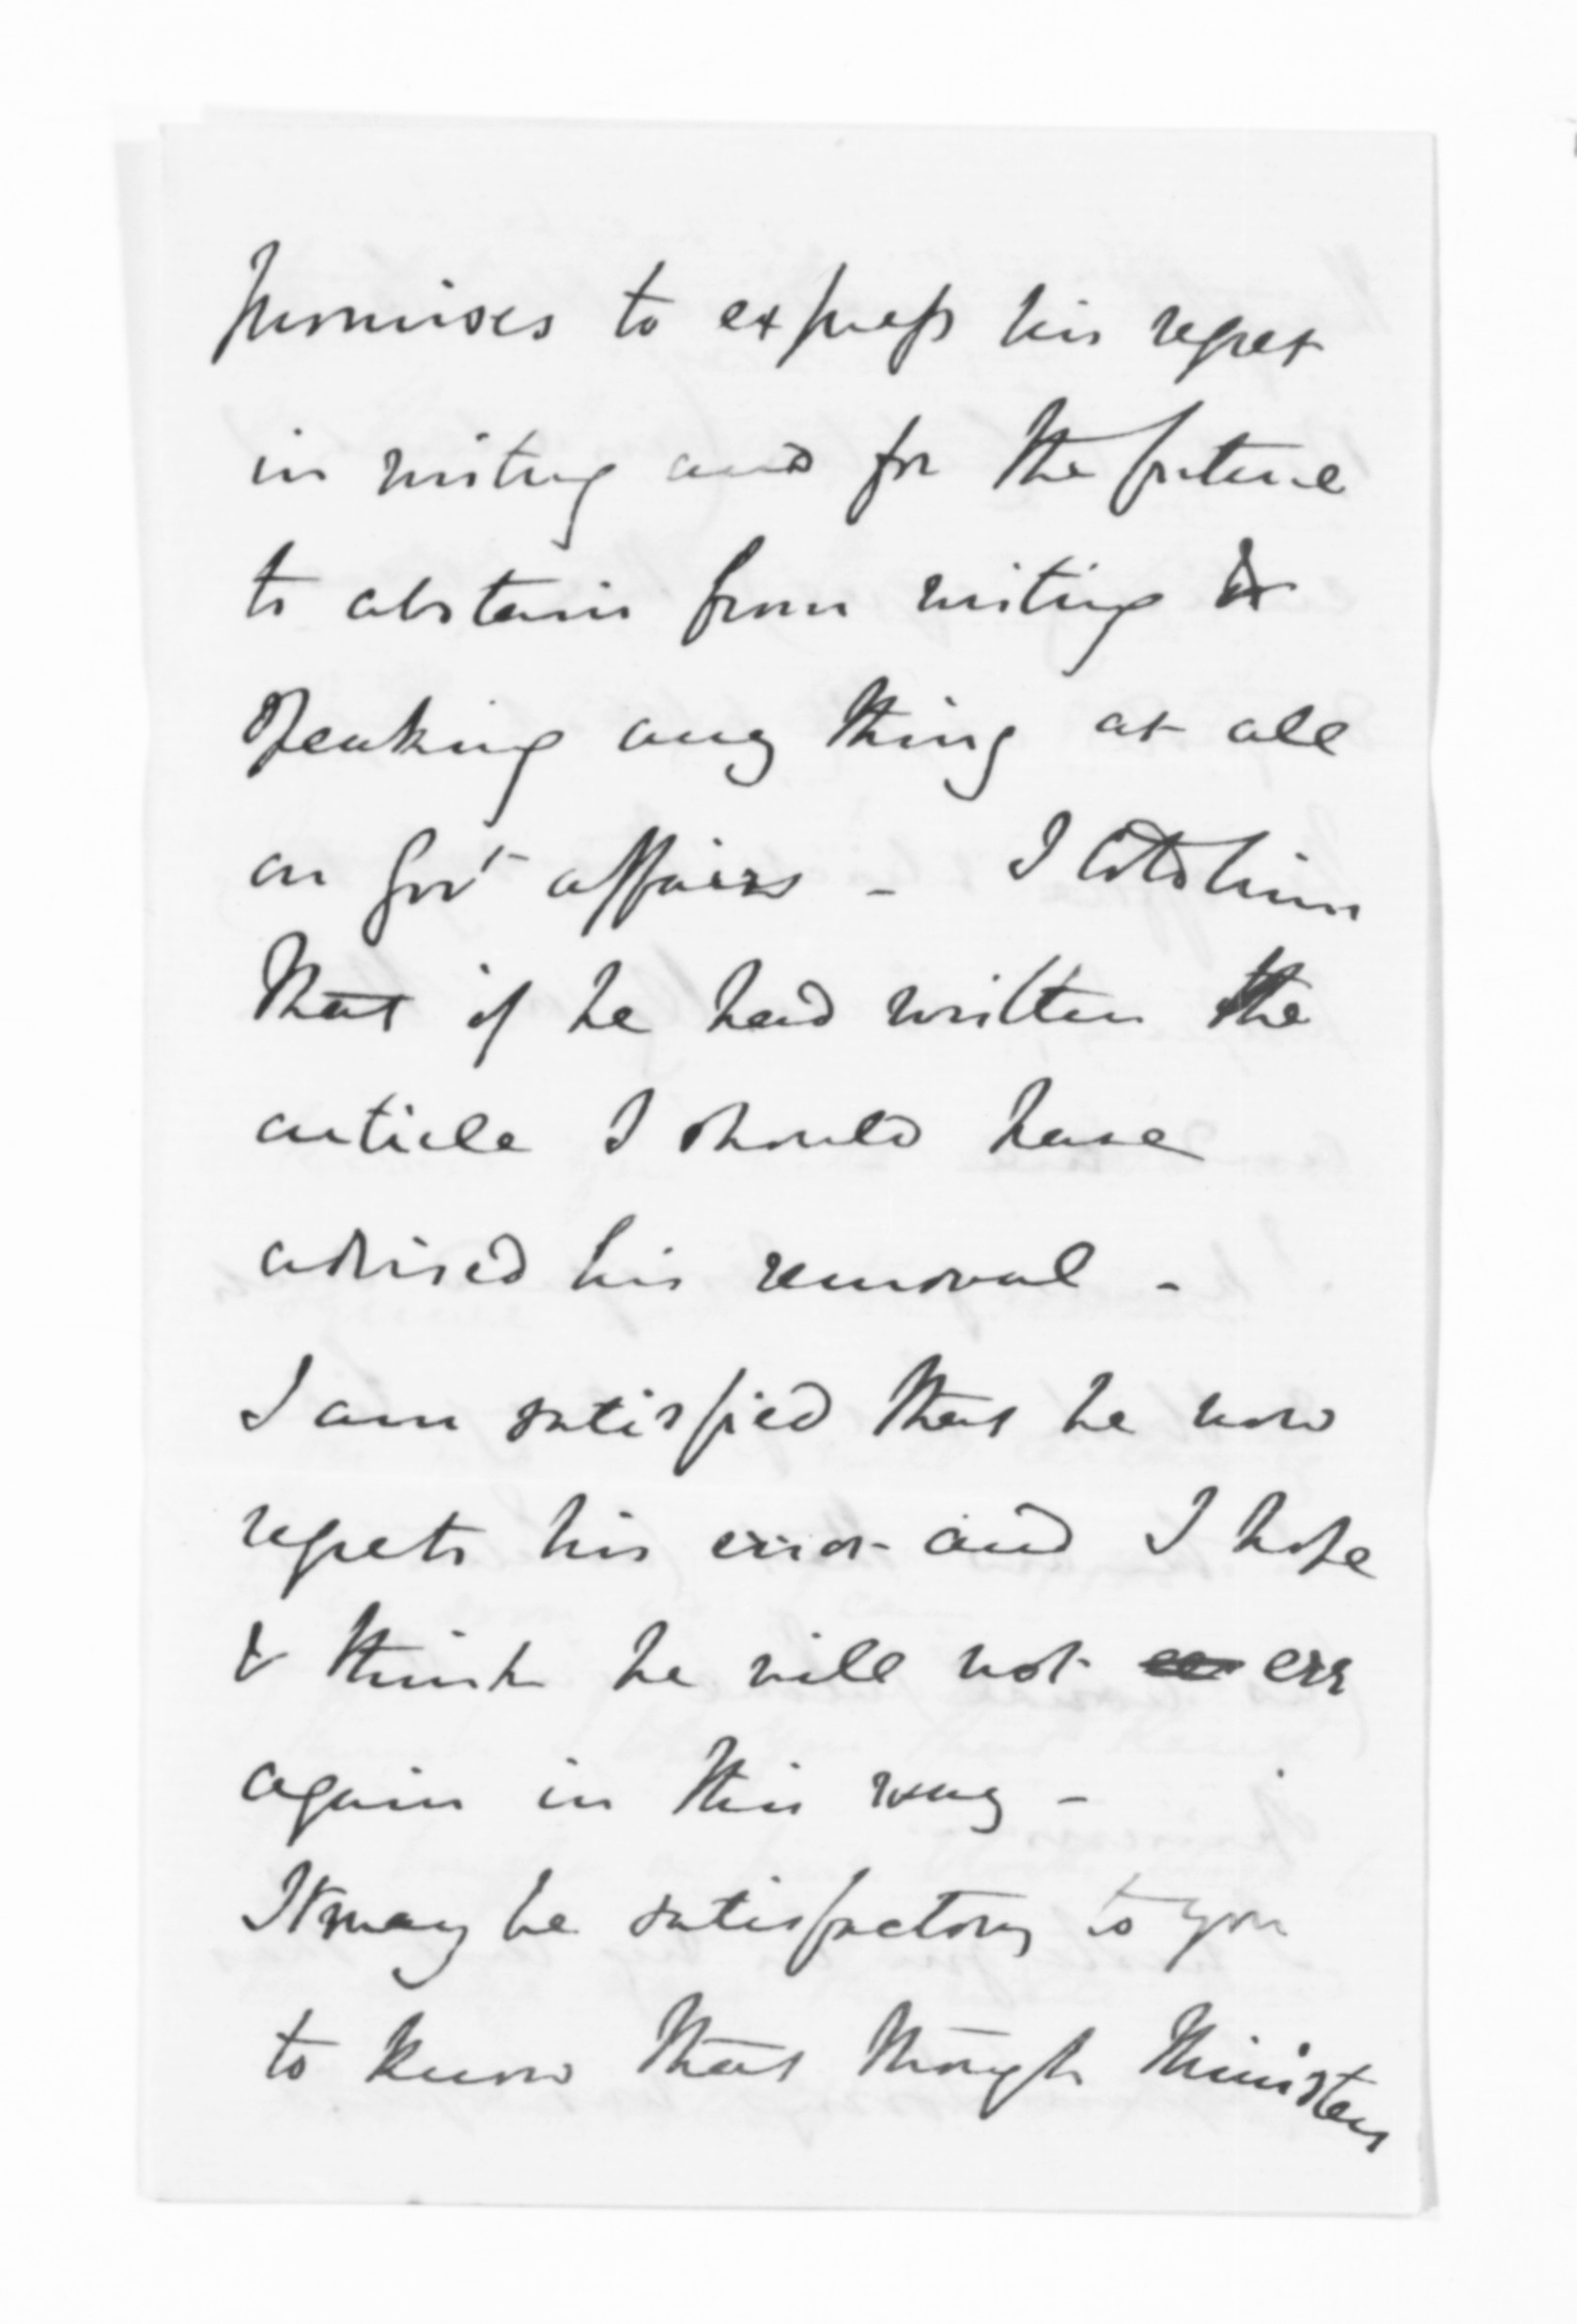 promises to express his regret
in writing and for the future
to abstain from writing &
speaking any thing at all
on Govt affairs - I told him
that if he had written the
article I should have
advised his removal -
I am satisfied that he now
regrets his error and I hope
& think he will not err
again in this way -
It may be satisfactory to you
to know that though Ministers